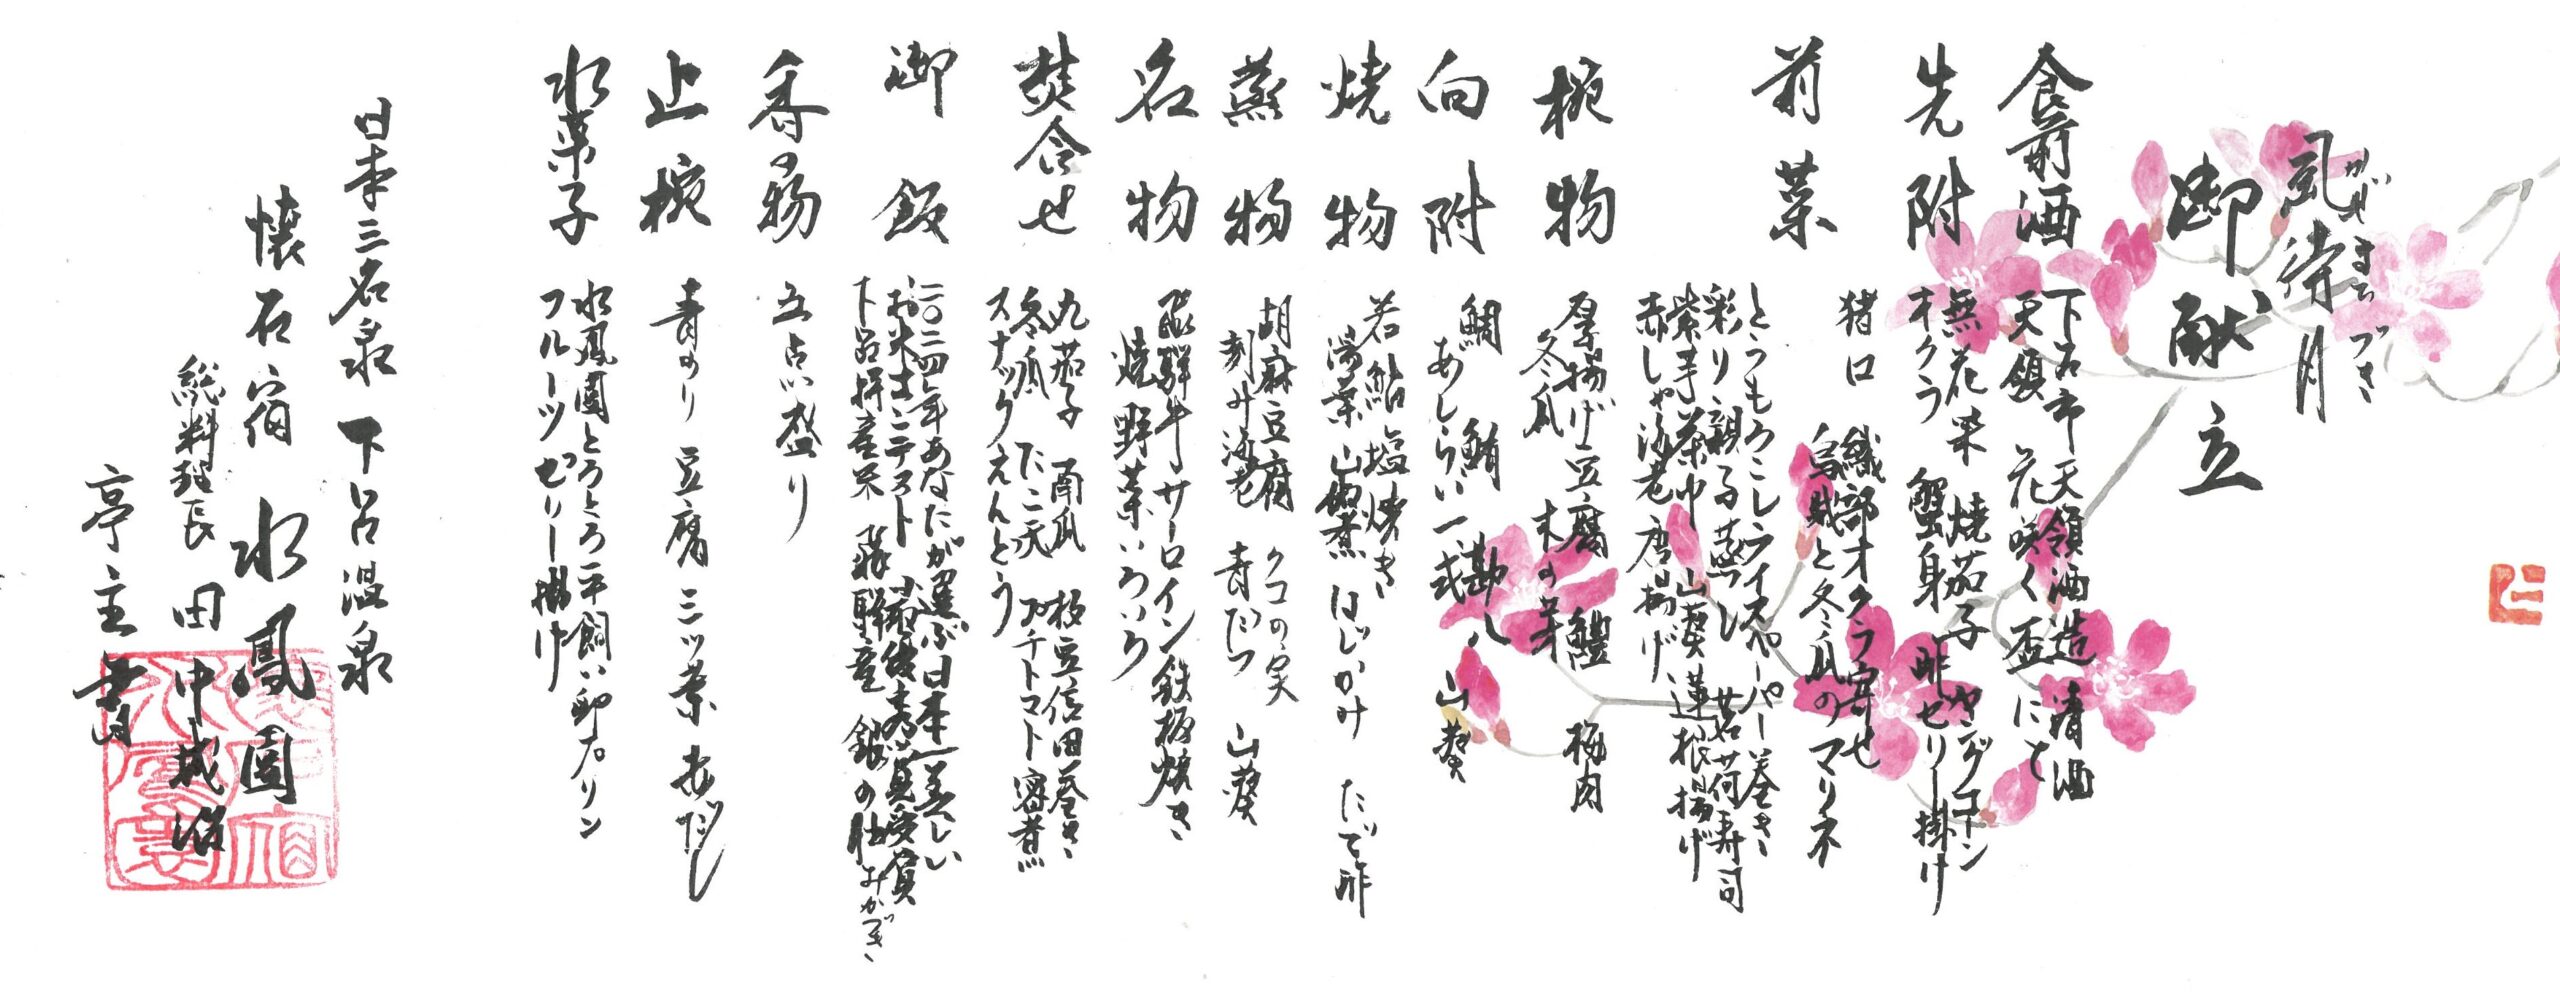 風待月
かぜまちづき
御献立
食前酒
下呂市 天領酒造 清酒
天領 花咲く盃にて
先附
無花果 焼茄子 ヤングコーン
オクラ 蟹身 酢ゼリー掛け
前菜
猪口 織部オクラ寄せ
烏賊と冬瓜のマリネ
とうもろこしライスペーパー巻き
彩り親子蒸し 茗荷寿司
紫芋茶巾 山葵蓮根揚げ
赤しゃ海老唐揚げ
椀物
厚揚げ豆腐 鱧 梅肉
冬瓜 木の芽
向附
鯛 鮪 勘八 山葵
あしらい一式
焼物
若鮎塩焼き
湯葉山椒煮 はじかみ たで酢
蒸物
胡麻豆腐 クコの実 山葵
刻み海老 青だつ
名物
飛騨牛サーロイン鉄板焼き
焼野菜いろいろ
焚合せ
丸茄子 南瓜 枝豆信田巻き
冬瓜 たこ天 プチトマト蜜煮
スナックえんどう
御飯
二〇二四年あなたが選ぶ日本一美しい
お米コンテスト 最優秀賞受賞
下呂市産米 飛騨産 銀の朏みかづき
香の物
五点盛り
止椀
青のり豆腐 三ツ葉 赤だし
水菓子
水鳳園とろとろ平飼い卵プリン
フルーツゼリー掛け
日本三名泉 下呂温泉
懐石宿 水鳳園
総料理長 田中城治
亭主 書